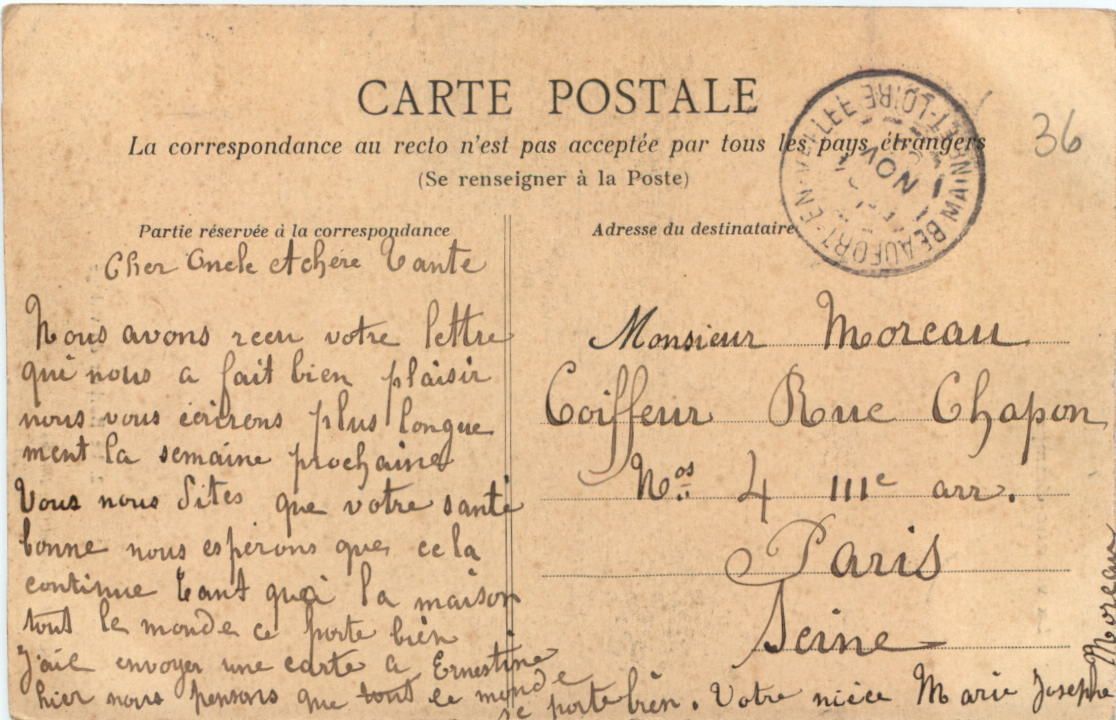 CARTE POSTALE
La correspondance au recto n'est pas acceptée par tous les pays étrangers
(Se renseigner à la Poste)
36
BEAUFORT-EN-VALLEE
MAINE-ET-LOIRE
NOV
Partie réservée à la correspondance
Cher Oncle et chère Tante
Nous avons recu votre lettre
qui nous a fait bien plaisir
nous vous écrirons plus longue
ment la semaine prochaine
Vous nous dites que votre santé
bonne nous espérons que cela
continue tant qu'à la maison
tout le monde ce porte bien
J'ai envoyer une carte a Ernestine
hier nous pensons que tout le monde
se porte bien. Votre nièce Marie Josephe
Moreau
Adresse du destinataire
Monsieur Moreau
Coiffeur Rue Chapon
Nos 4 IIIe arr.
Paris
Seine